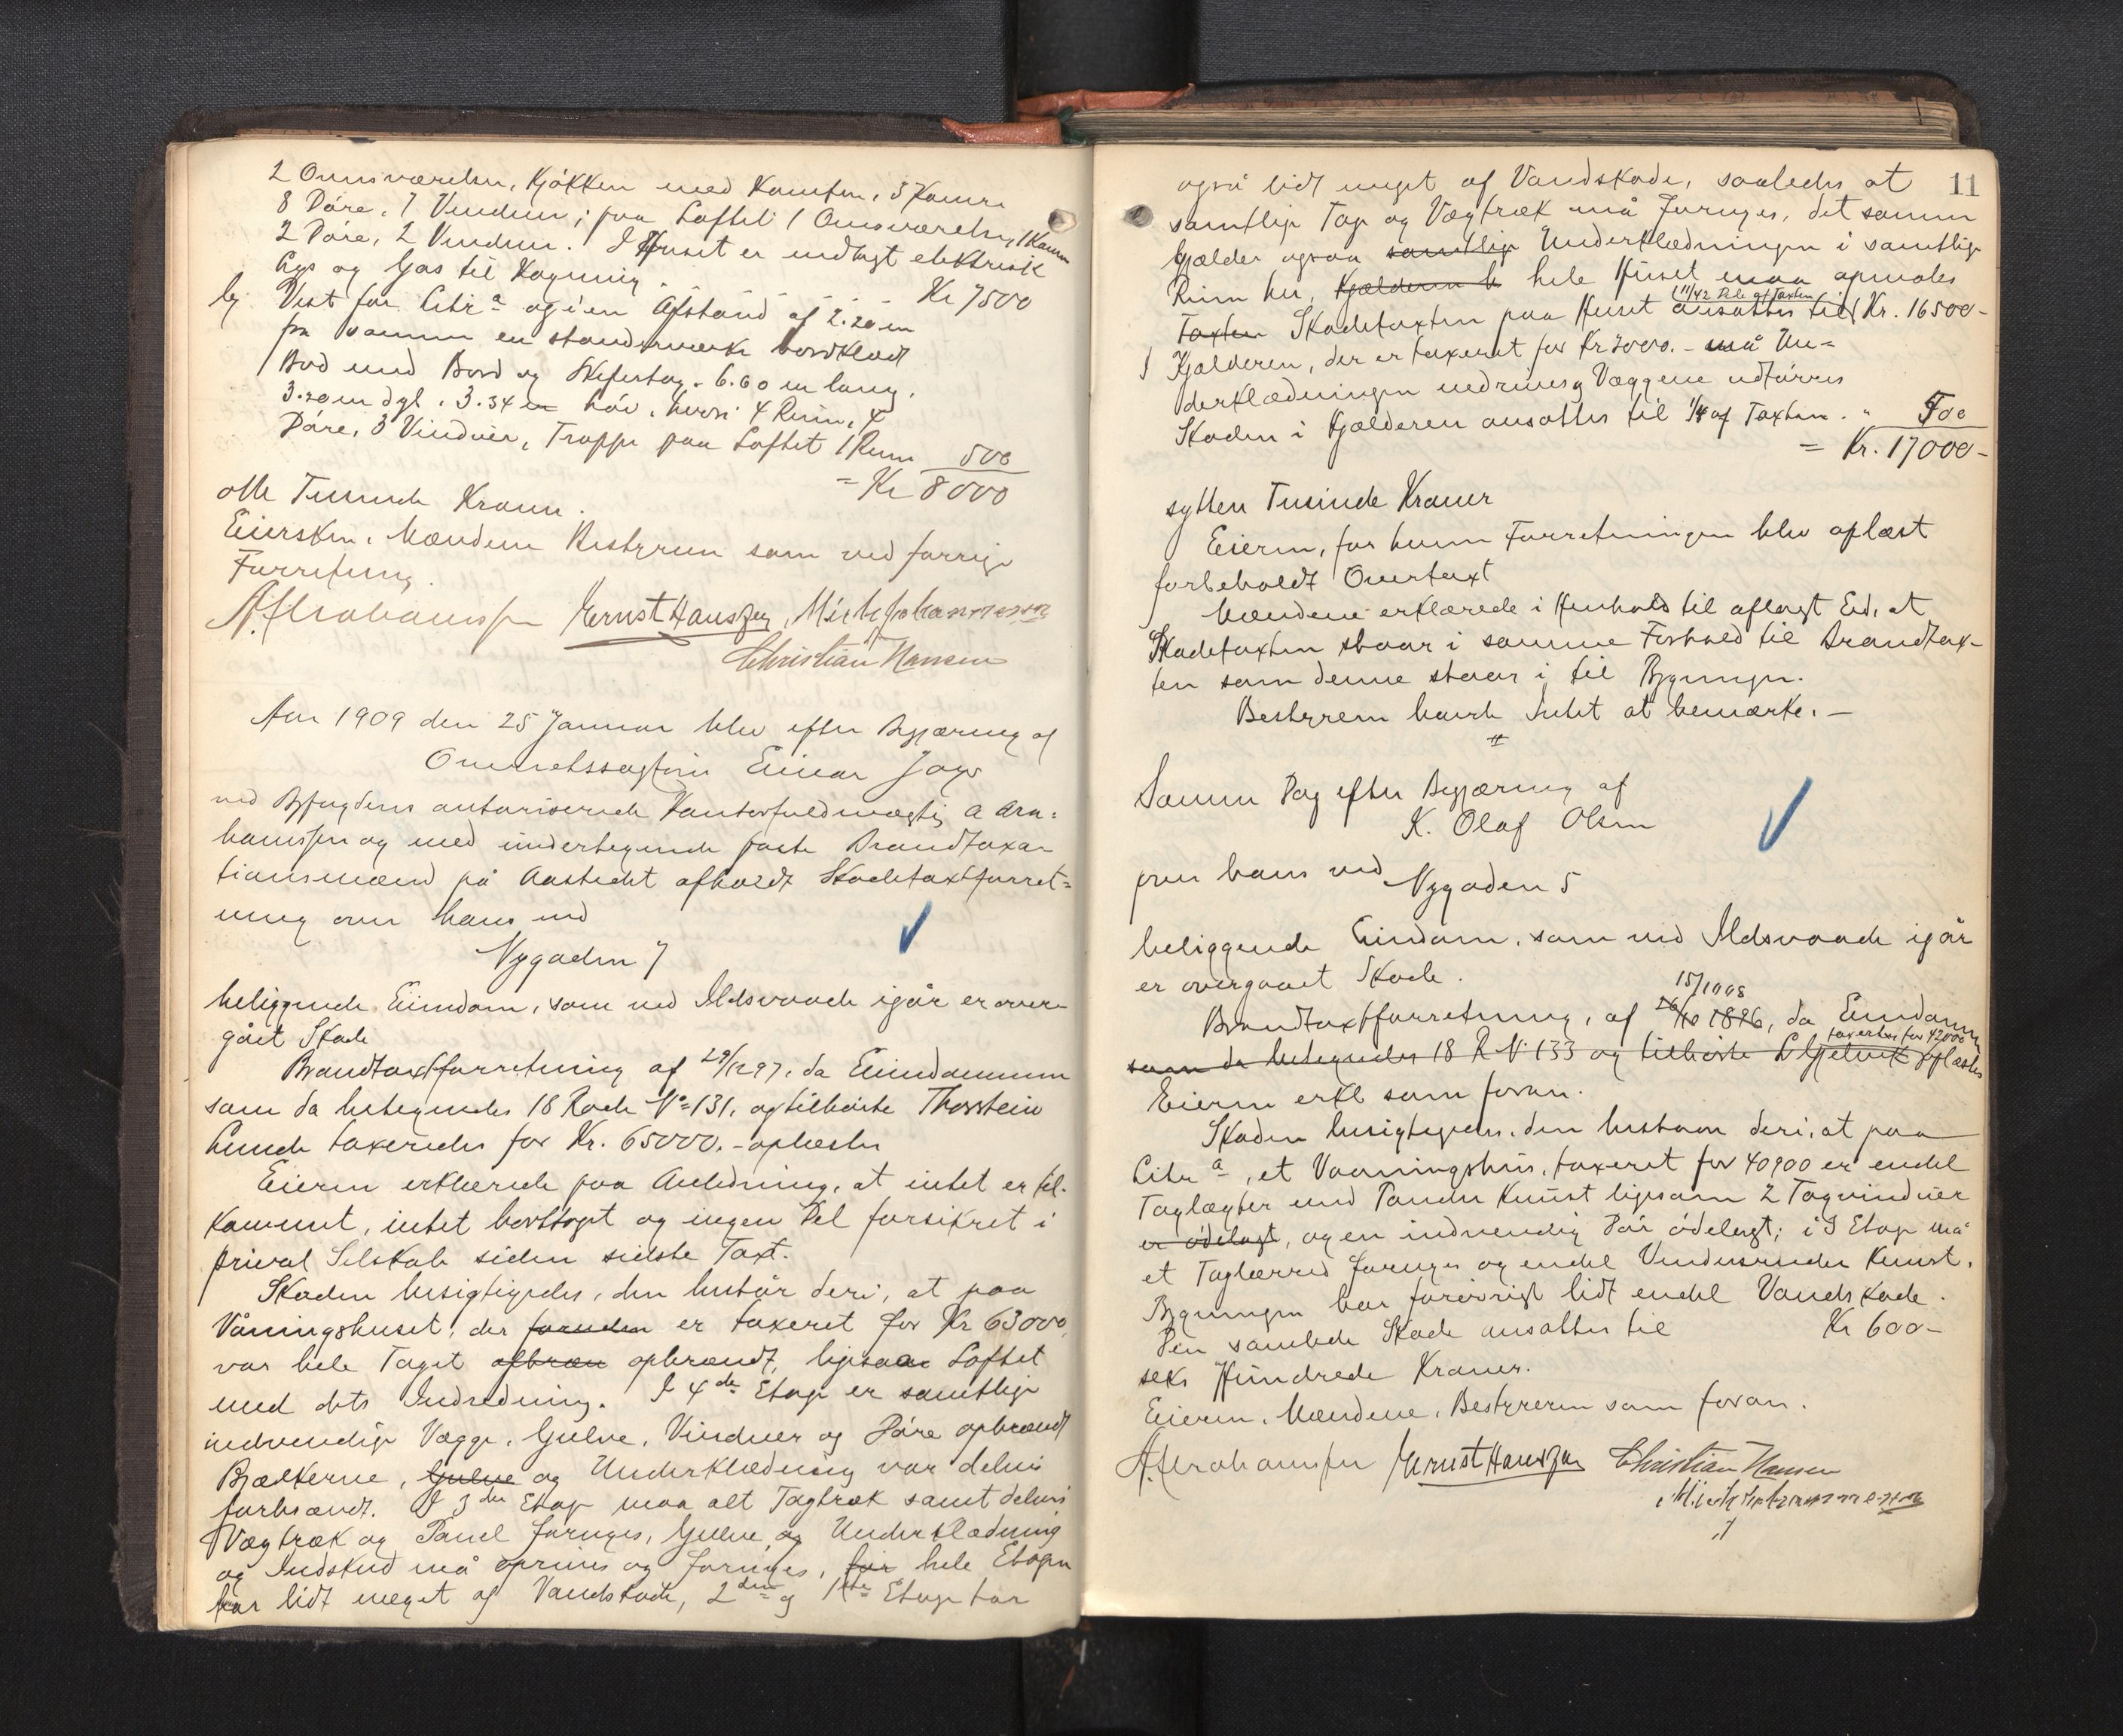 2 Onnsværelser, Kjøkken med Komfur, 3 Kamre
8 Døre, 7 Vinduer; paa Loftet 1 Onnsværelse, 1 Kammer
2 Døre, 2 Vinduer. I Huset er indlagt elektrisk
Lys og Gas til Kogning. Kr 7500
b, Vest for Litr a og i en Afstand af 2.20 m
fra samme en standerværks bordklædt
Bod med Bord og Skifertag. 6.60 m lang,
3.20 m dyb, 3.34 m høi, hvori 4 Rum, 4
Døre, 3 Vinduer, Trappe paa Loftet 1 Rum 500
= Kr 8000
otte Tusinde Kroner.
Eiersken, Mændene Bestyreren som ved forrige
Forretning.
A. Abrahamssen Ernst Hanssen, Mich Johannessen
Christian Hansen
Aar 1909 den 25 Januar blev efter Begjæring af
Overretssagfører Einar Jays
ved Byfogdens autoriserede Kontorfuldmægtig A Abra-
hamssen og med undertegnede faste Brandtaxa-
tionsmænd på Aastedet afholdt Skadetaxtforret-
ning over hans ved
Nygaden 7
beliggende Eiendom, som ved Ildsvaade igår er over-
gået Skade
Brandtaxtforretning af 29/12 97, da Eiendommen
som da betegnedes 18 Rode No 131, og tilhørte Thorstein
Lunde taxeredes for Kr. 65000.- oplæstes
Eieren erklærede paa Anledning, at intet er til-
kommet, intet borttaget og ingen Del forsikret i
privat Selskab siden sidste Taxt.
Skaden besigtigedes, den består deri, at paa
Våningshuset, der foruden er taxeret for Kr 63000,
var hele Taget afbræn opbrændt, ligesaa Loftet
med dets Indredning. I 4de Etage er samtlige
indvendige Vægge, Gulve, Vinduer og Døre opbrændt
Bjælkerne, Gulve og Underklædning var delvis
forbrændt. I 3die Etage maa alt Tagtræk samt delvis
Vægtræk og Panel fornyes, Gulve og Underklædning
og Indskud må oprives og fornyes, for hele Etagen
har lidt meget af Vandskade, 2den og 1ste Etage har
11
også lidt meget af Vandskade, saaledes at
samtlige Tag og Vægtræk må fornyes, det samme
gjælder ogsaa samtlige Underklædningen i samtlige
Rum her, Kjælderen b hele Huset maa opmales
11/42 Dele af Taxten
Taxten Skadetaxten paa Huset ansattes til Kr. 16500-
I Kjælderen, der er taxeret for Kr 2000.- må Un-
derklædningen nedrives og Væggene udtørres
Skaden i Kjælderen ansattes til 1/4 af Taxten. " 500
= Kr. 17000-
sytten Tusinde Kroner
Eieren, for hvem Forretningen blev oplæst
forbeholdt Overtaxt
Mændene erklærede i Henhold til aflagt Ed, at
Skadetaxten staar i samme Forhold til Brandtax-
ten som denne staar i til Bygningen.
Bestyreren havde Intet at bemærke. -
Samme Dag efter Begjæring af
K. Olaf Olsen
over hans ved Nygaden 5
beliggende Eiendom, som ved Ildsvaade igår
er overgaaet Skade.
15/1908
Brandtaxtforretning, af 26/10 1896, da Eiendommen
taxertes for 42000
som da betegnedes 18 R N 133 og tilhørte L Gjelvik oplæstes
Eieren erkl som foran.
Skaden besigtigedes, den bestaar deri, at paa
Litr a, et Vaaningshus, taxeret for 40900 er endel
Taglægter med Pander knust ligesom 2 Tagvinduer
er ødelagt, og en indvendig Dør ødelagt; i 3 Etage må
et Taglærred fornyes og endel Vinduesruder knust.
Bygningen har forøvrigt lidt endel Vandskade.
Den samlede Skade ansattes til Kr 600-
seks Hundrede Kroner.
Eieren, Mændene, Bestyreren som foran.
A. Abrahamssen Ernst Hanssen Christian Hansen
Mich Johannessen